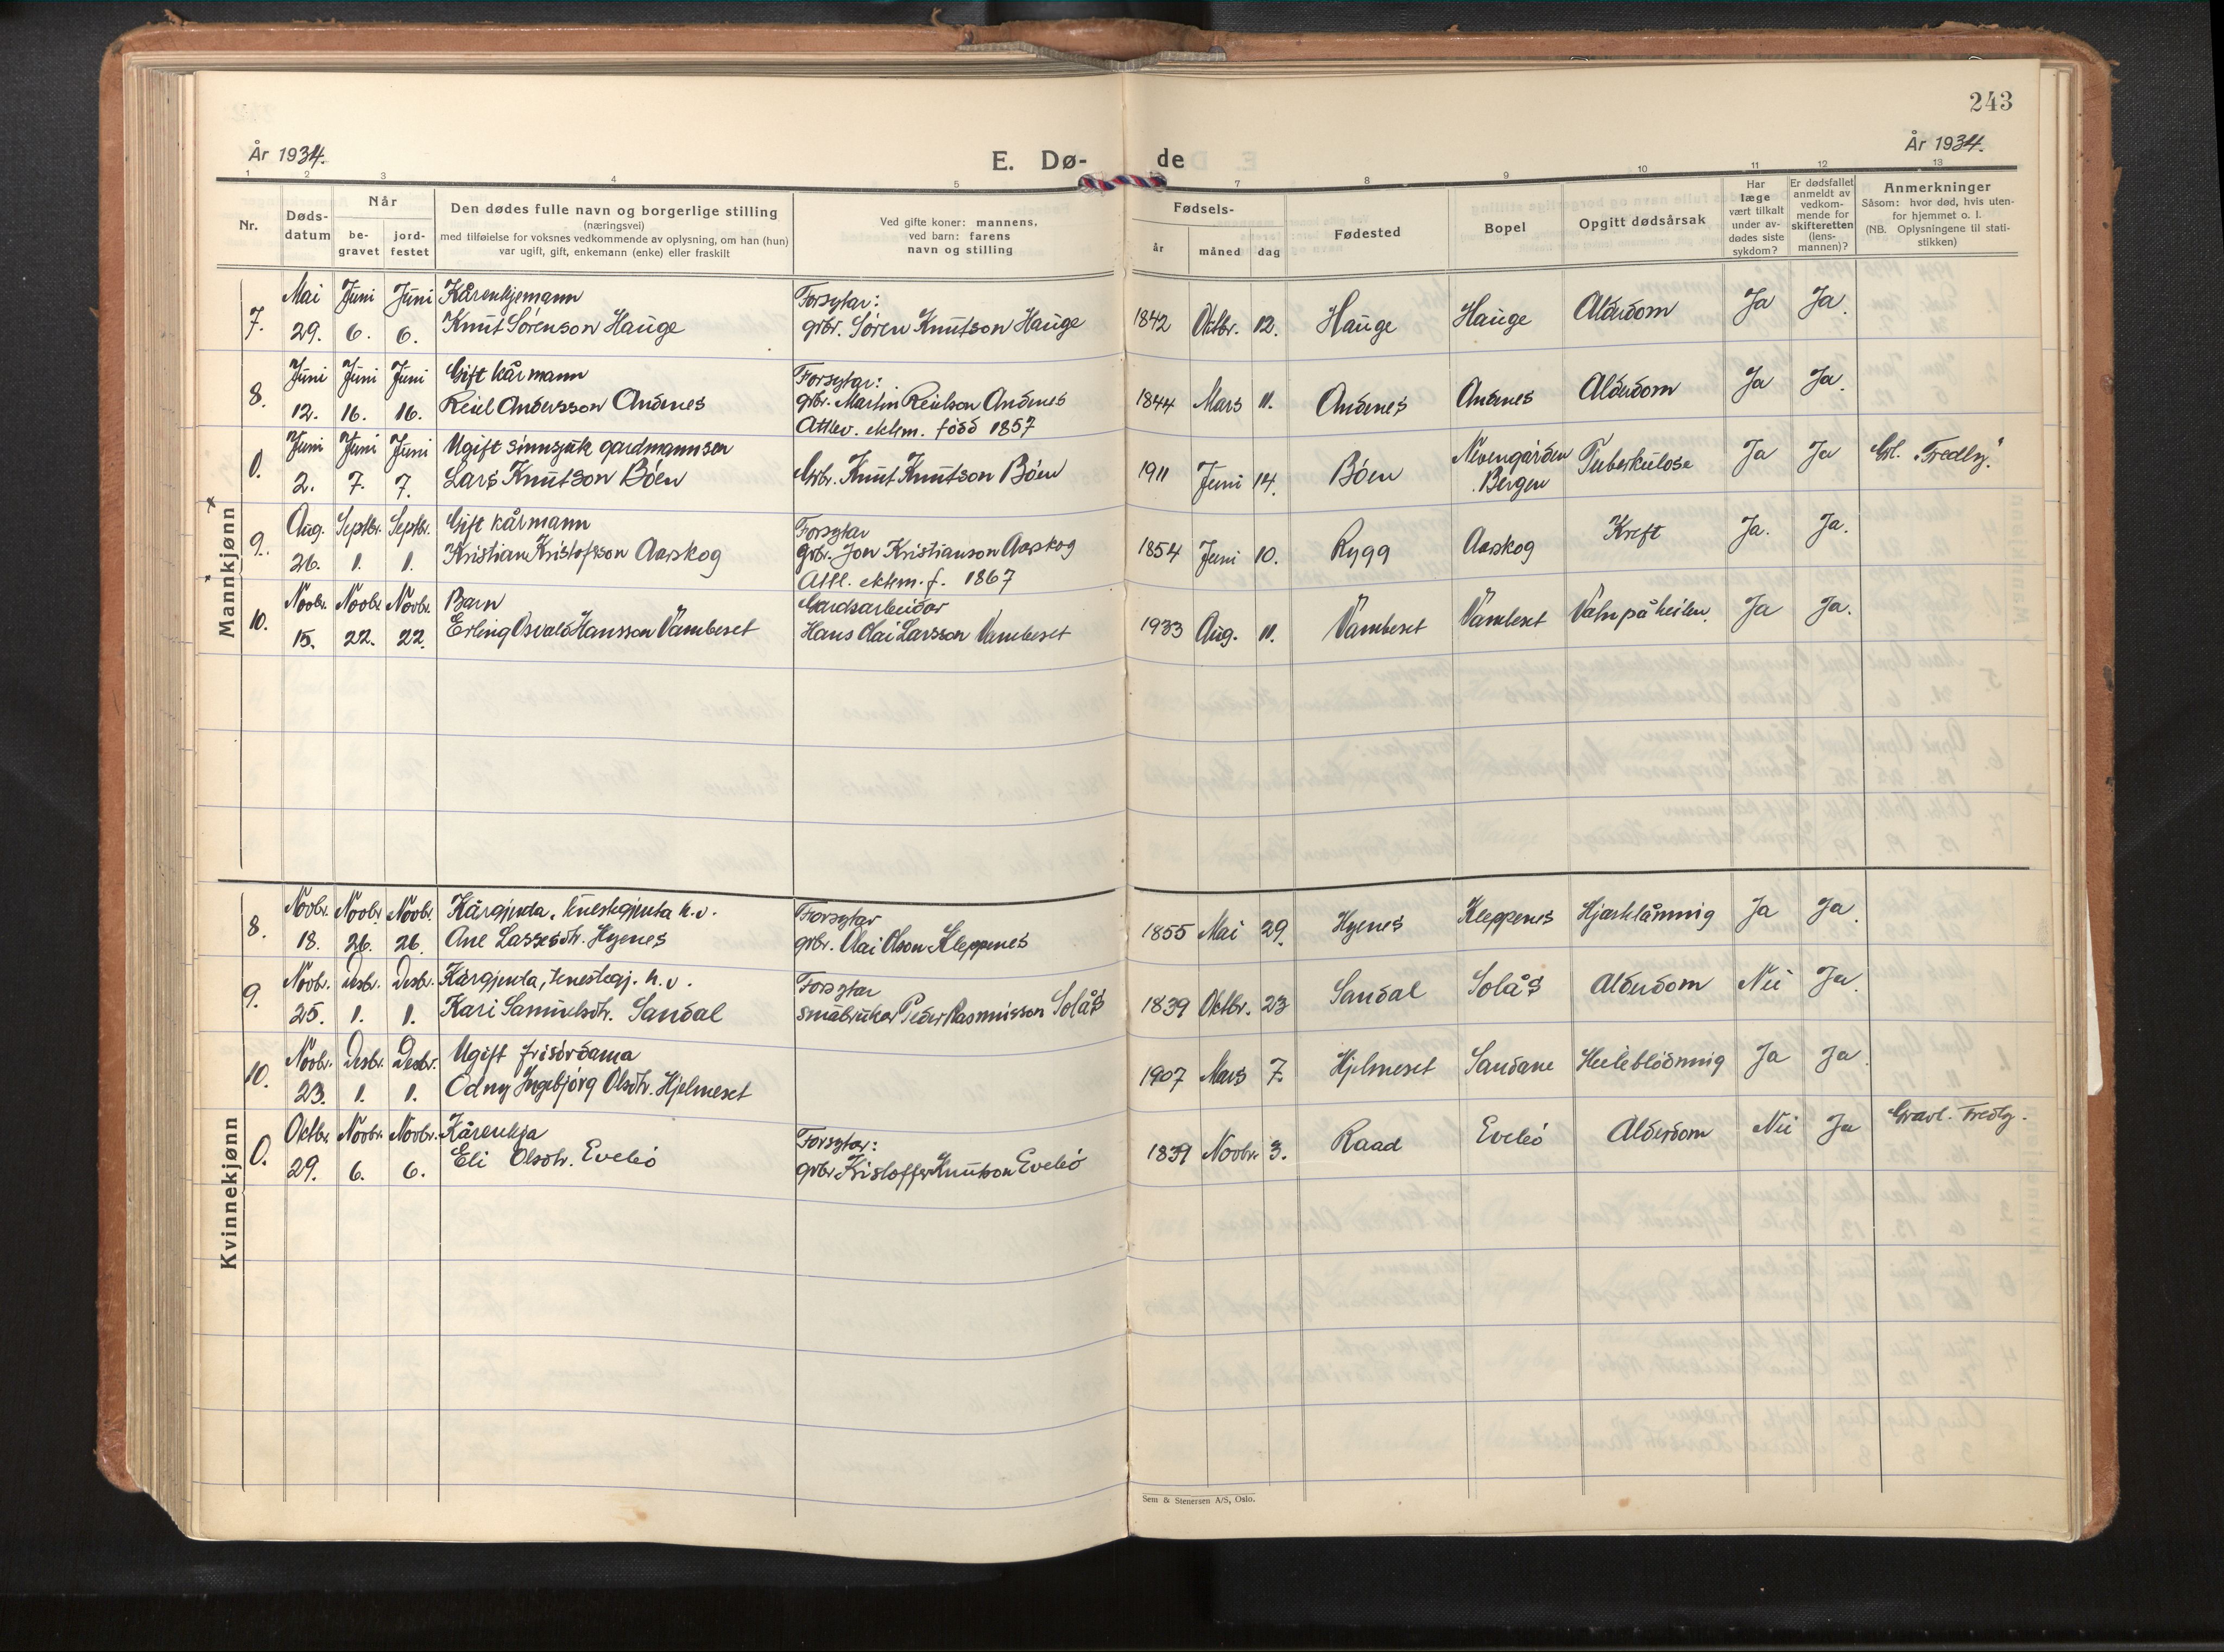 243
År 1934.
År 1934.
E. Dø-
de
1 2 3 4 5 7 8 9 10 11 12 13
Nr.
Døds-
datum
Når
be-
gravet
jord-
festet
Den dødes fulle navn og borgerlige stilling
(næringsvei)
med tilføielse for voksnes vedkommende av oplysning, om han (hun)
var ugift, gift, enkemann (enke) eller fraskilt
Ved gifte koner: mannens,
ved barn: farens
navn og stilling
Fødsels-
år
måned
dag
Fødested
Bopel
Opgitt dødsårsak
Har
læge
vært tilkalt
under av-
dødes siste
sykdom?
Er dødsfallet
anmeldt av
vedkom-
mende for
skifteretten
(lens-
mannen)?
Anmerkninger
Såsom: hvor død, hvis uten-
for hjemmet o. l.
(NB. Oplysningene til stati-
stikken)
Mannkjønn
7. Mai Juni Juni Kårenkjemann Forsytar:
29. 6. 6. Knut Sørenson Hauge grbr. Søren Knutson Hauge 1842 Oktbr. 12. Hauge Hauge Alderdom Ja Ja.
8. Juni Juni Juni Gift kårmann Forsytar:
12. 16. 16. Reiel Andersson Andenes grbr. Martin Reielson Andenes 1844 Mars 11. Andenes Andenes Alderdom Ja Ja.
Attlev. ektem. född 1857
0. Juni Juni Juni Ugift sinnsjuk gardmannson
2. 7. 7. Lars Knutson Böen Grbr. Knut Knutson Böen 1911 Juni 14. Böen Nevengården Bergen Tuberkulose Ja Ja Grl. "Fredly".
9. Aug. Septbr. Septbr. Gift kårmann Forsytar
26. 1. 1. Kristian Kristofsson Aarskog grbr. Jon Kristianson Aarskog 1854 Juni 10. Rygg Aarskog Kreft Ja. Ja.
Attl. ektem. f. 1867
10. Novbr. Novbr. Novbr. Barn Gardsarbeidar
15. 22. 22. Erling Osvald Hansson Vambeset Hans Olai Larsson Vambeset 1933 Aug. 11. Vambeset Vambeset Vatn på heilen. Ja Ja.
Kvinnekjønn
8. Novbr. Novbr. Novbr. Kårgjenta, tenestegjenta h.v. Forsytar
18. 26. 26. Ane Lassesdtr. Hyenes grbr. Olai Olson Kleppenes 1855 Mai 29. Hyenes Kleppenes Hjarteläming Ja Ja.
9. Novbr. Desbr. Desbr. Kårgjenta, tenestegj. h.v. Forsytar
25. 1. 1. Kari Samuelsdtr. Sandal småbrukar Peder Rasmusson Solås 1839 Oktbr. 23 Sandal Solås Alderdom Nei Ja.
10. Novbr. Desbr. Desbr. Ugift frisördama
23. 1. 1. Odny Ingebjörg Olsdtr. Hjelmeset 1907 Mars 7. Hjelmeset Sandane Heileblödning Ja Ja.
0. Oktbr. Novbr. Novbr. Kårenkja Forsytar:
29. 6. 6. Eli Olsdtr. Evebö grbr. Kristoffer Knutson Evebö 1839 Novbr. 3. Raad Evebö Alderdom Nei Ja Gravl. Fredly.
Sem & Stenersen A/S, Oslo.